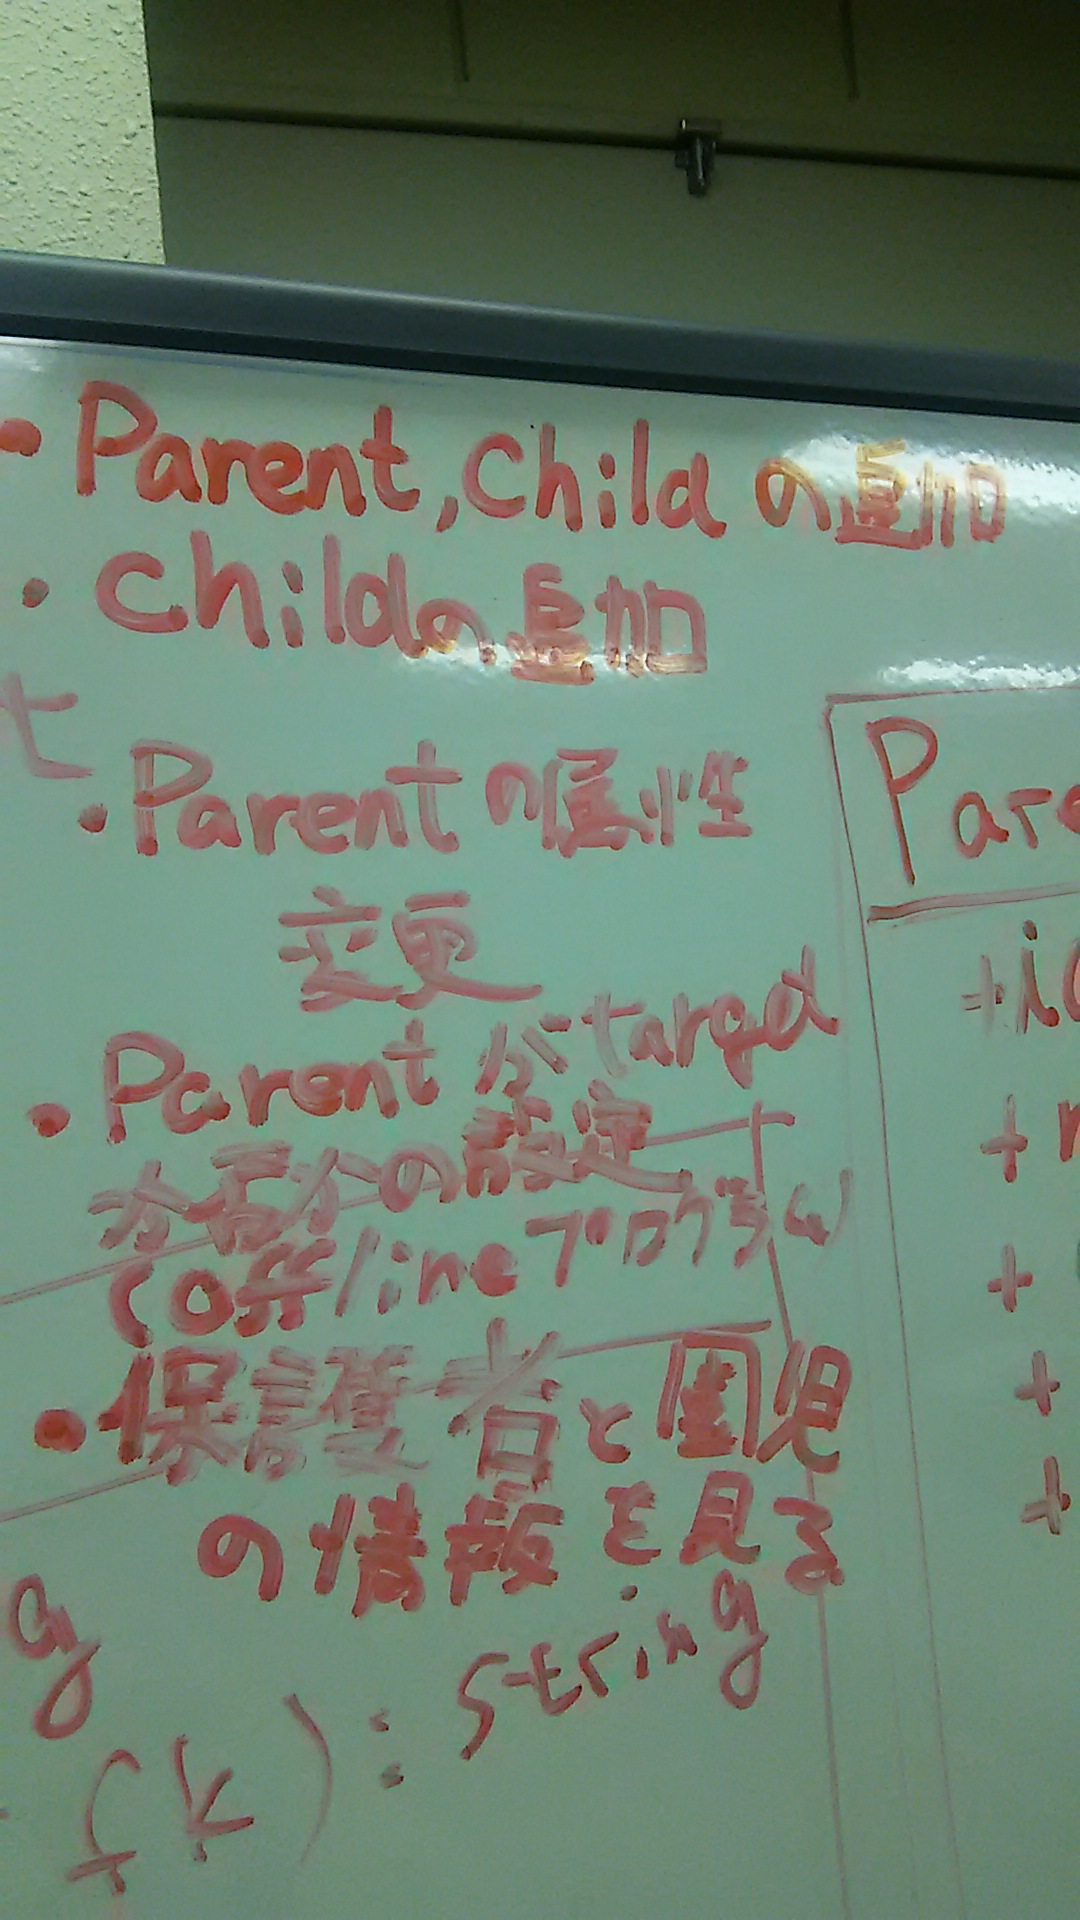 ・Parent,Childの追加
・Childの追加
t
・Parentの属性
変更
・Parentがtarget
か否かの設定
line プログラム
・保護者と園児
の情報を見る
g
(k):string
Pare
+i
+
+
+
+